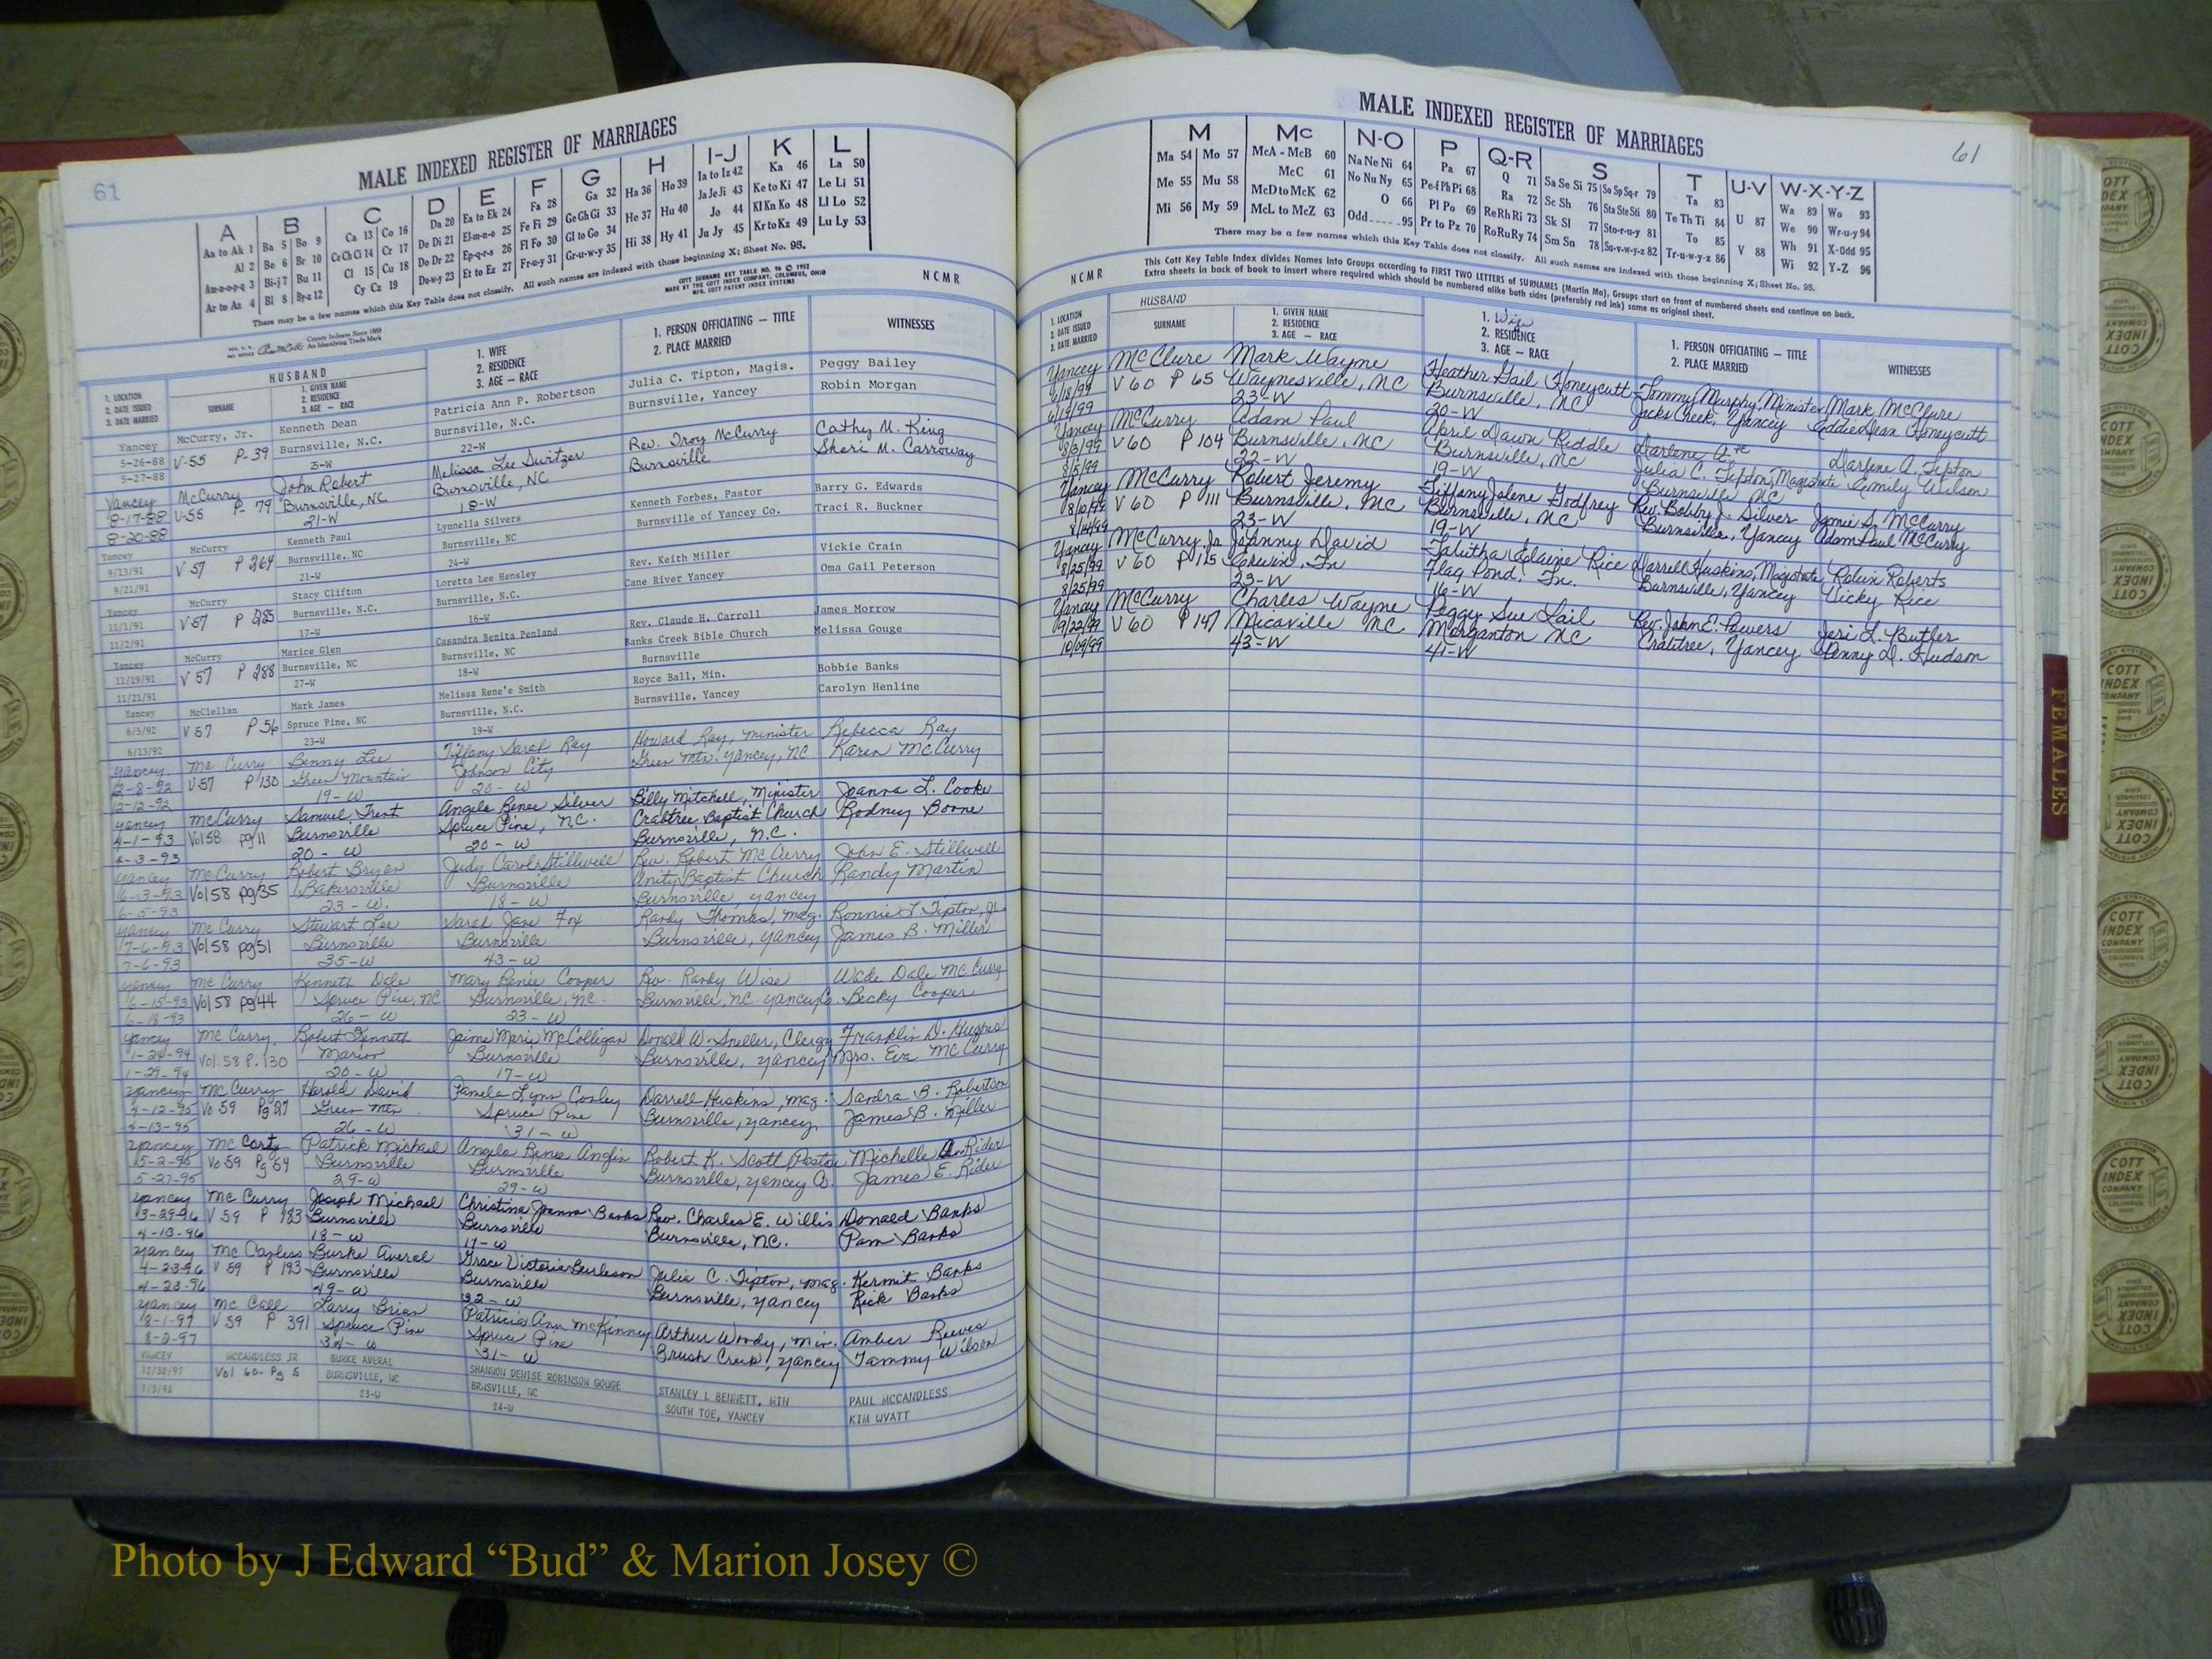 61
MALE INDEXED REGISTER OF MARRIAGES
A B C D E F G H I-J K L
Aa to Ak 1 Ba 5 Bo 9 Ca 13 Co 16 Da 20 Ea to Ek 24 Fa 28 Ga 32 Ha 36 Ho 39 Ia to Iz 42 Ka 46 La 50
Al 2 Be 6 Br 10 Ce Ch Ci 14 Cr 17 De Di 21 El-m-n-o 25 Fe Fi 29 Ge Gh Gi 33 He 37 Hu 40 Ja Je Ji 43 Ke to Ki 47 Le Li 51
Am-n-o-p-q 3 Bi-j 7 Bu 11 Cl 15 Cu 18 Do Dr 22 Ep-q-r-s 26 Fl Fo 30 Gl to Go 34 Hi 38 Hy 41 Jo 44 Kl Kn Ko 48 Ll Lo 52
Ar to Az 4 Bl 8 By-z 12 Cy Cz 19 Du-w-y 23 Et to Ez 27 Fr-u-y 31 Gr-u-w-y 35 Ju Jy 45 Kr to Kz 49 Lu Ly 53
There may be a few names which this Key Table does not classify. All such names are indexed with those beginning X; Sheet No. 95.
COTT SURNAME KEY TABLE NO. 96 © 1952
MADE BY THE COTT INDEX COMPANY, COLUMBUS, OHIO
MFG. COTT PATENT INDEX SYSTEMS
NCMR
County Indexes Since 1888
An Identifying Trade Mark
1. LOCATION
2. DATE ISSUED
3. DATE MARRIED
HUSBAND
SURNAME
1. GIVEN NAME
2. RESIDENCE
3. AGE — RACE
1. WIFE
2. RESIDENCE
3. AGE — RACE
1. PERSON OFFICIATING — TITLE
2. PLACE MARRIED
WITNESSES
Yancey McCurry, Jr. Kenneth Dean Patricia Ann P. Robertson Julia C. Tipton, Magis. Peggy Bailey
5-26-88 V-55 P-39 Burnsville, N.C. Burnsville, N.C. Burnsville, Yancey Robin Morgan
5-27-88 25-W 22-W
Yancey McCurry John Robert Melissa Lee Switzer Rev. Troy McCurry Cathy M. King
8-17-88 V-55 P- 79 Burnsville, NC Burnsville, NC Burnsville Sheri M. Carroway
8-20-88 21-W 18-W
Yancey McCurry Kenneth Paul Lynnella Silvers Kenneth Forbes, Pastor Barry G. Edwards
9/13/91 V 57 P 264 Burnsville, NC Burnsville, NC Burnsville of Yancey Co. Traci R. Buckner
9/21/91 21-W 24-W
Yancey McCurry Stacy Clifton Loretta Lee Hensley Rev. Keith Miller Vickie Crain
11/1/91 V 57 P 285 Burnsville, N.C. Burnsville, N.C. Cane River Yancey Oma Gail Peterson
11/2/91 17-W 16-W
Yancey McCurry Marice Glen Casandra Benita Penland Rev. Claude H. Carroll James Morrow
11/19/91 V 57 P 288 Burnsville, NC Burnsville, NC Banks Creek Bible Church Melissa Gouge
11/21/91 27-W 18-W Burnsville
Yancey McClellan Mark James Melissa Rene'e Smith Royce Ball, Min. Bobbie Banks
6/5/92 V 57 P 56 Spruce Pine, NC Burnsville, N.C. Burnsville, Yancey Carolyn Henline
6/13/92 23-W 19-W
Yancey Mc Curry Benny Lee Tiffany Sarah Ray Howard Ray, minister Rebecca Ray
12-8-92 V-57 P 130 Green Mountain Johnson City Green Mtn. Yancey, NC Karen McCurry
12-12-92 19-W 20-W
Yancey McCurry Samuel Trent Angela Renee Silver Billy Mitchell, Minister Joanna L. Cooke
4-1-93 Vol 58 pg 11 Burnsville Spruce Pine, N.C. Crabtree Baptist Church Rodney Boone
4-3-93 20-W 20-W Burnsville, N.C.
Yancey McCurry Robert Bryan Judy Carol Stillwell Rev. Robert McCurry John E. Stillwell
6-3-93 Vol 58 pg 35 Bakersville Burnsville Unity Baptist Church Randy Martin
6-5-93 23-W. 18-W Burnsville, Yancey
Yancey Mc Curry Stewart Lee Sarah Jane Fox Randy Thomas, Mag. Ronnie T. Tipton, Jr.
7-6-93 Vol 58 pg 51 Burnsville Burnsville Burnsville, Yancey James B. Miller
7-6-93 35-W 43-W
Yancey Mc Curry Kenneth Dale Mary Renee Cooper Rev. Randy Wise Wade Dale McCurry
6-15-93 Vol 58 pg 44 Spruce Pine, NC Burnsville, NC. Burnsville, NC Yancey Co. Becky Cooper
6-18-93 26-W 23-W
Yancey Mc Curry Robert Kenneth Jaime Marie McColligan Donald W. Sneller, Clergy Franklin D. Hughes
1-24-94 Vol. 58 P. 130 Marion Burnsville Burnsville, Yancey Mrs. Eva McCurry
1-29-94 20-W 17-W
Yancey Mc Curry Harold David Pamela Lynn Conley Darrell Huskins, Mag. Sandra B. Robertson
4-12-95 Vo 59 Pg 27 Green Mtn. Spruce Pine Burnsville, Yancey James B. Miller
4-13-95 26-W 31-W
Yancey McCarty Patrick Michael Angela Renea Anglin Robert K. Scott Pastor Michelle D. Rider
5-2-95 Vo 59 Pg 54 Burnsville Burnsville Burnsville, Yancey Co. James E. Rider
5-27-95 29-W 29-W
Yancey Mc Curry Joseph Michael Christina Joanna Banks Rev. Charles E. Willis Donald Banks
3-29-96 V 59 P 183 Burnsville Burnsville Burnsville, N.C. Pam Banks
4-13-96 18-W 17-W
Yancey Mc Canless Burke Averal Grace Victoria Burleson Julia C. Tipton, Mag. Kermit Banks
4-23-96 V 59 P 193 Burnsville Burnsville Burnsville, Yancey Rick Banks
4-23-96 49-W 32-W
Yancey Mc Call Larry Brian Patricia Ann McKinney Arthur Woody, Min. Amber Reeves
8-1-97 V 59 P 391 Spruce Pine Spruce Pine Brush Creek, Yancey Tammy Wilson
8-2-97 34-W 31-W
YANCEY MCCANDLESS JR BURKE AVERAL SHANNON DENISE ROBINSON GOUGE STANLEY L BENNETT, MIN PAUL MCCANDLESS
12/30/97 Vol 60- Pg 5 BURNSVILLE, NC BRNSVILLE, NC SOUTH TOE, YANCEY KIM WYATT
1/3/98 23-W 24-W
MALE INDEXED REGISTER OF MARRIAGES
61
M Mc N-O P Q-R S T U-V W-X-Y-Z
Ma 54 Mo 57 McA - McB 60 Na Ne Ni 64 Pa 67 Q 71 Sa Se Si 75 So Sp Sq-r 79 Ta 83 U 87 Wa 89 Wo 93
Me 55 Mu 58 McC 61 No Nu Ny 65 Pe-f Ph Pi 68 Ra 72 Sc Sh 76 Sta Ste Sti 80 Te Th Ti 84 V 88 We 90 Wr-u-y 94
Mi 56 My 59 McD to McK 62 O 66 Pl Po 69 Re Rh Ri 73 Sk Sl 77 Sto-r-u-y 81 To 85 Wh 91 X-Odd 95
McL to McZ 63 Odd 95 Pr to Pz 70 Ro Ru Ry 74 Sm Sn 78 Su-v-w-y-z 82 Tr-u-w-y-z 86 Wi 92 Y-Z 96
There may be a few names which this Key Table does not classify. All such names are indexed with those beginning X; Sheet No. 95.
NCMR
This Cott Key Table Index divides Names into Groups according to FIRST TWO LETTERS of SURNAMES (Martin Ma). Groups start on front of numbered sheets and continue on back.
Extra sheets in back of book to insert where required which should be numbered alike both sides (preferably red ink) same as original sheet.
1. LOCATION
2. DATE ISSUED
3. DATE MARRIED
HUSBAND
SURNAME
1. GIVEN NAME
2. RESIDENCE
3. AGE — RACE
1. Wife
2. RESIDENCE
3. AGE — RACE
1. PERSON OFFICIATING — TITLE
2. PLACE MARRIED
WITNESSES
Yancey McClure Mark Wayne Heather Gail Honeycutt Tommy Murphy, Minister Mark McClure
6/18/99 V 60 P 65 Waynesville, NC Burnsville, NC Jacks Creek, Yancey Eddie Dean Honeycutt
6/19/99 23-W 20-W
Yancey McCurry Adam Paul April Dawn Riddle Darlene A. Tipton
8/3/99 V 60 P 104 Burnsville, NC Burnsville, NC Julia C. Tipton, Magistrate Emily Wilson
8/5/99 22-W 19-W Burnsville NC
Yancey McCurry Robert Jeremy Tiffany Jolene Godfrey Rev. Bobby J. Silver Jamie S. McCurry
8/10/99 V 60 P 111 Burnsville, NC Burnsville, NC Burnsville, Yancey Adam Paul McCurry
8/14/99 23-W 19-W
Yancey McCurry Jr Johnny David Tabitha Elaine Rice Darrell Huskins, Magistrate Robin Roberts
8/25/99 V 60 P 125 Erwin, Tn Flag Pond, Tn. Burnsville, Yancey Vicky Rice
8/25/99 23-W 16-W
Yancey McCurry Charles Wayne Peggy Sue Lail Rev. John E. Powers Jeri L. Butler
9/22/99 V 60 P 147 Micaville NC Morganton NC Crabtree, Yancey Penny D. Hudson
10/09/99 43-W 41-W
FEMALES
COTT INDEX COMPANY COLUMBUS OHIO
Photo by J Edward “Bud” & Marion Josey ©